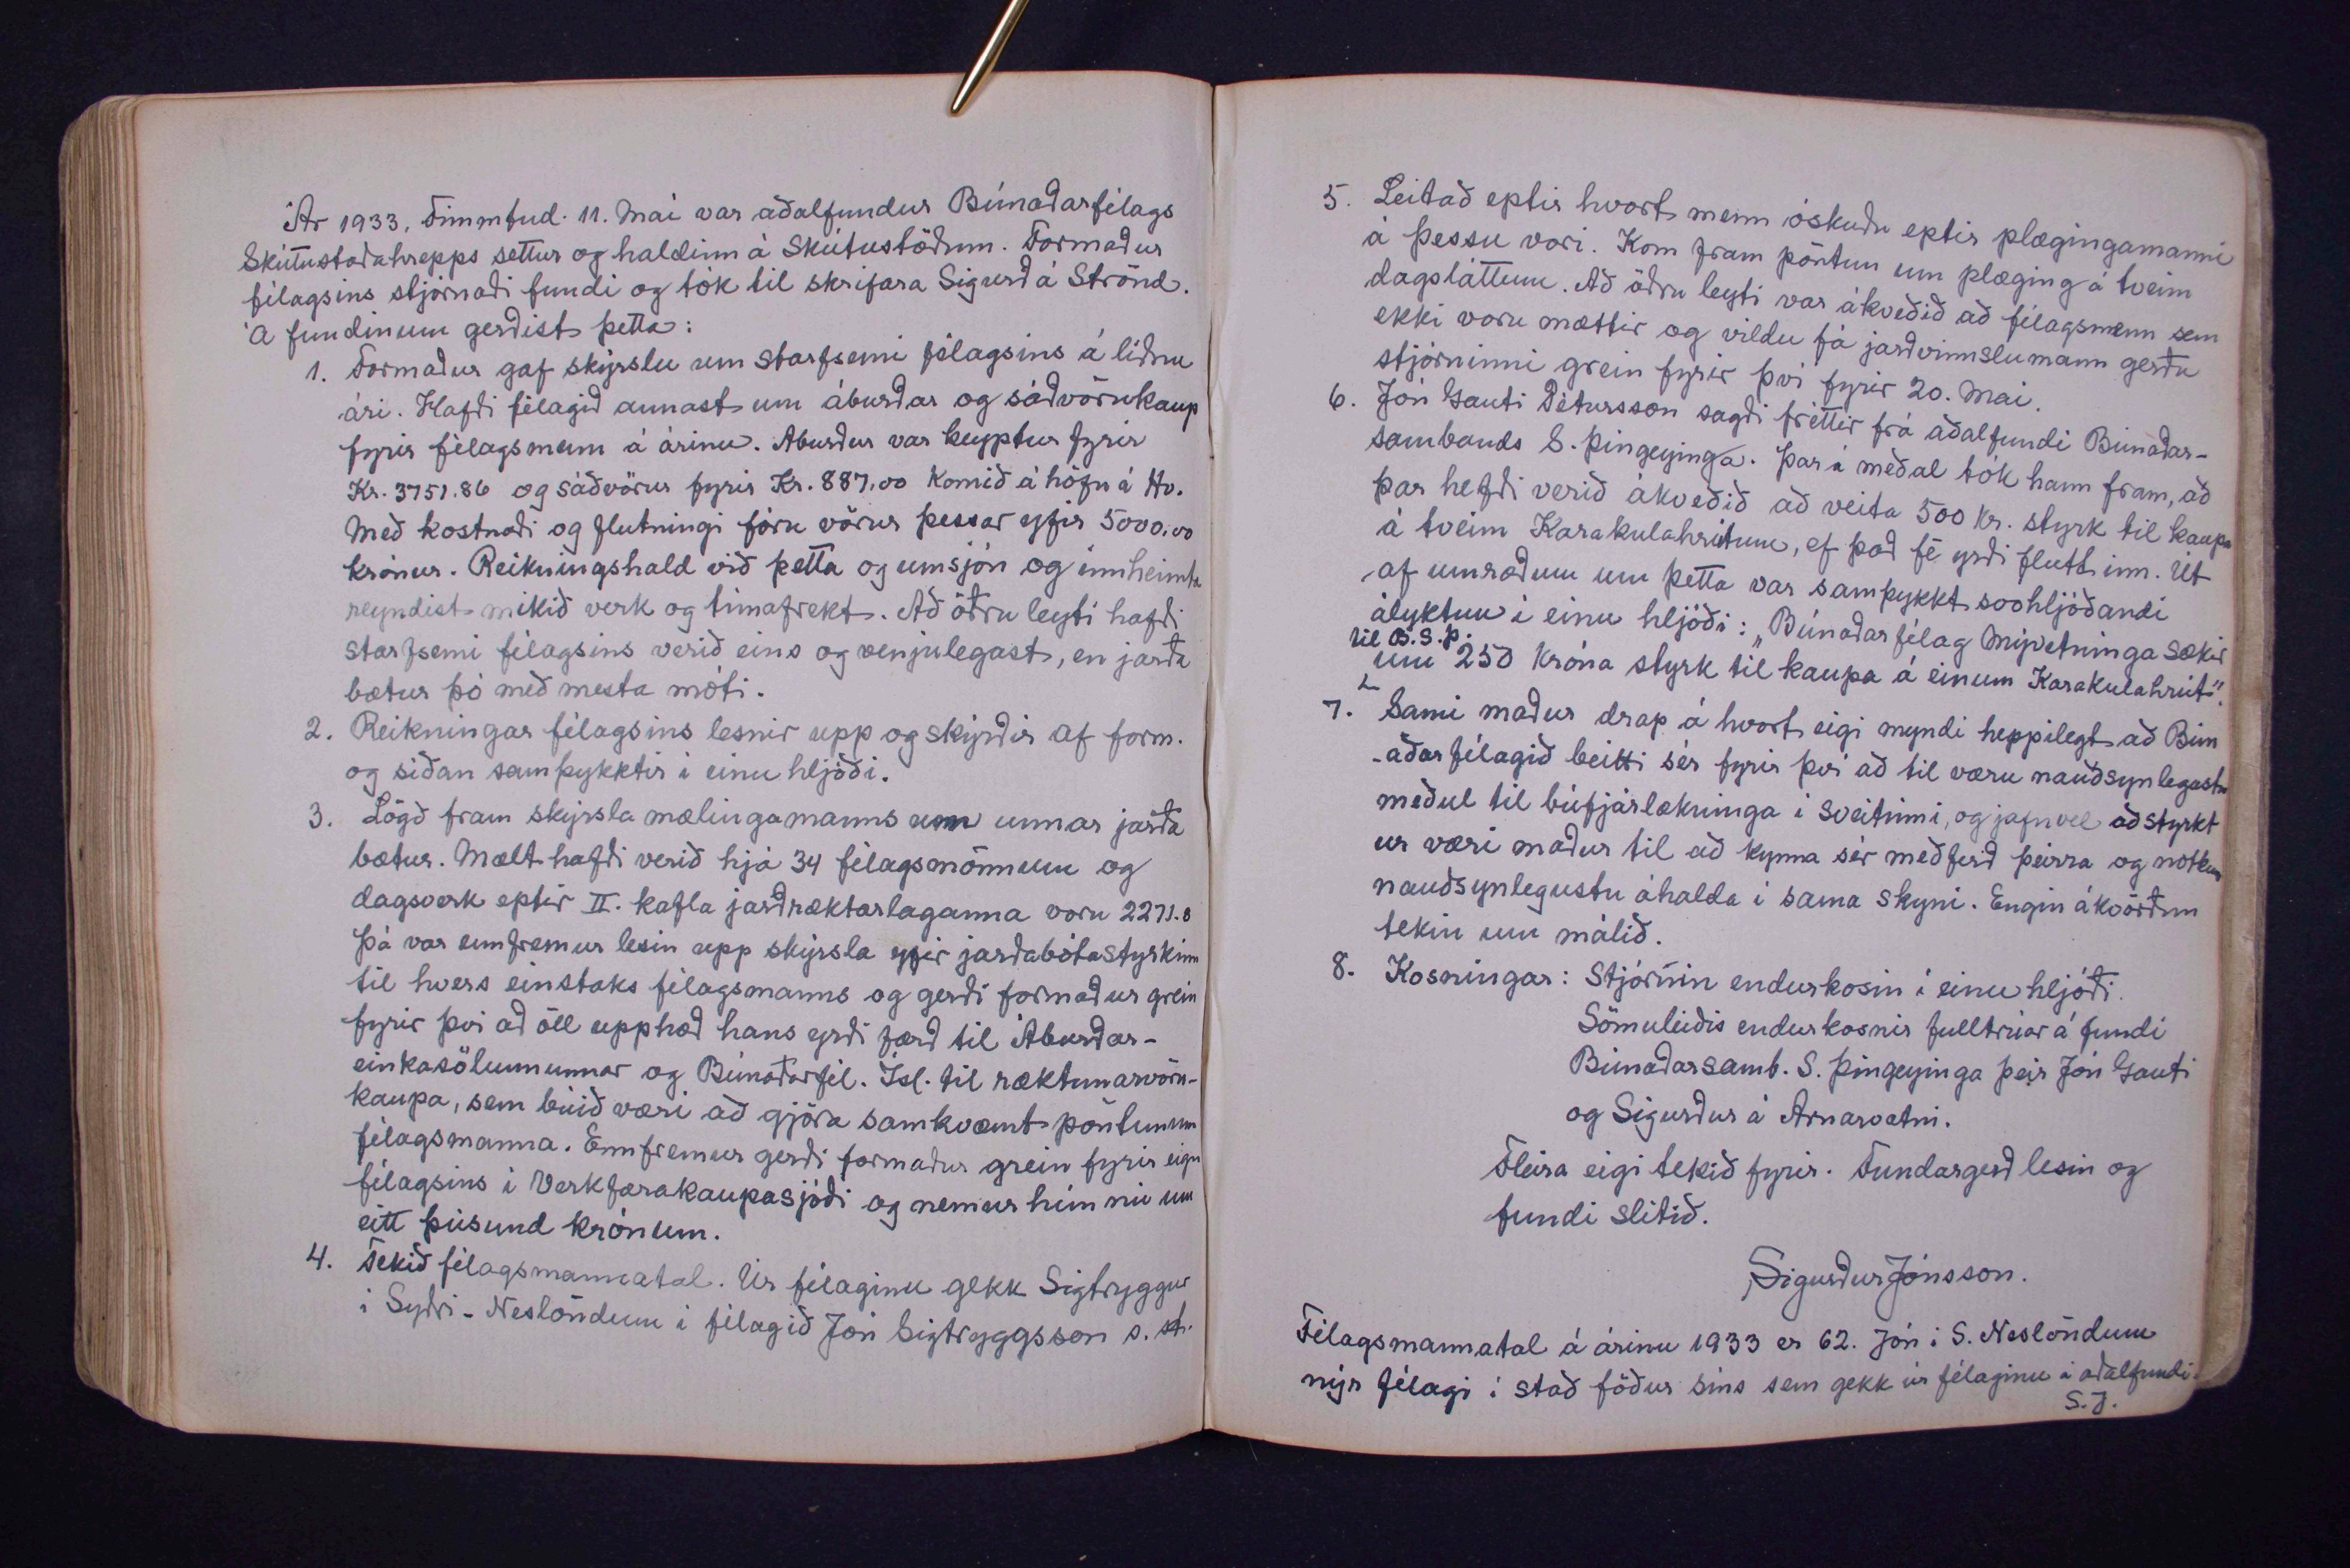 Ár 1933, Fimmtud. 11. Maí var aðalfundur Búnaðarfélags
Skútustaðahrepps settur og haldinn á Skútustöðum. Formaður
félagsins stjórnaði fundi og tók til skrifara Sigurð á Strönd.
Á fundinum gerðist þetta:
1. Formaður gaf skýrslu um starfsemi félagsins á liðnu
ári. Hafði félagið annast um áburðar og sáðvörukaup
fyrir félagsmenn á árinu. Áburður var keyptur fyrir
Kr. 3751.86 og sáðvörur fyrir Kr. 887,00 komið á höfn á Hv.
Með kostnaði og flutningi fóru vörur þessar yfir 5000,00
krónur. Reikningshald við þetta og umsjón og innheimta
reyndist mikið verk og tímafrekt. Að öðru leyti hafði
starfsemi félagsins verið eins og venjulegast, en jarða
bætur þó með mesta móti.
2. Reikningar félagsins lesnir upp og skýrðir af form.
og síðan samþykktir í einu hljóði.
3. Lögð fram skýrsla mælingamanns um unnar jarða
bætur. Mælt hafði verið hjá 34 félagsmönnum og
dagsverk eptir II. kafla jarðræktarlaganna voru 2271.8
Þá var ennfremur lesin upp skýrsla yfir jarðabótastyrkinn
til hvers einstaks félagsmanns og gerði formaður grein
fyrir því að öll upphæð hans yrði færð til Áburðar-
einkasölununnar og Búnaðarfél. Ísl. til ræktunarvöru-
kaupa, sem búið væri að gjöra samkvæmt pöntunum
félagsmanna. Ennfremur gerði formaður grein fyrir eign
félagsins í Verkfærakaupasjóði og nemur hún nú um
eitt þúsund krónum.
4. Tekið félagsmannatal. Úr félaginu gekk Sigtryggur
í Syðri-Neslöndum í félagið Jón Sigtryggsson s. st.
5. Leitað eptir hvort menn óskuðu eptir plægingamanni
á þessu vori. Kom fram pöntun um plæging á tveim
dagsláttum. Að öðru leyti var ákveðið að félagsmenn sem
ekki voru mættir og vildu fá jarðvinnslumann gerðu
stjórninni grein fyrir því fyrir 20. Maí.
6. Jón Gauti Pétursson sagði fréttir frá aðalfundi Búnaðar-
sambands S. Þingeyinga. Þar á meðal tók hann fram, að
þar hefði verið ákveðið að veita 500 kr. styrk til kaupa
á tveim Karakulahrútum, ef það fé yrði flutt inn. Út
af umræðum um þetta var samþykkt svohljóðandi
ályktun í einu hljóði: „Búnaðarfélag Mývetninga sækir
til B.S.Þ.
um 250 króna styrk til kaupa á einum Karakulahrút".
7. Sami maður drap á hvort eigi myndi heppilegt að Bún
-aðarfélagið beitti sér fyrir því að til væru nauðsynlegastu
meðul til búfjárlækninga í sveitinni, og jafnvel að styrkt
ur væri maður til að kynna sér meðferð þeirra og notkun
nauðsynlegustu áhalda í sama skyni. Engin ákvörðun
tekin um málið.
8. Kosningar: Stjórnin endurkosin í einu hljóði.
Sömuleiðis endurkosnir fulltrúar á fundi
Búnaðarsamb. S. Þingeyinga þeir Jón Gauti
og Sigurður á Arnarvatni.
Fleira eigi tekið fyrir. Fundargerð lesin og
fundi slitið.
Sigurður Jónsson.
Félagsmannatal á árinu 1933 er 62. Jón í S. Neslöndum
nýr félagi í stað föður síns sem gekk úr félaginu á aðalfundi.
S.J.